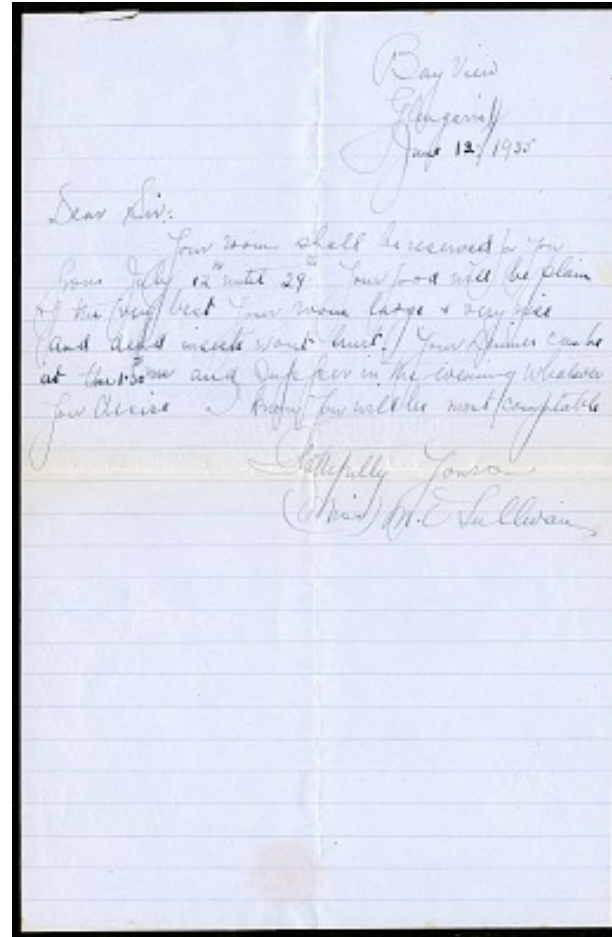 Bay View
Glengarriff
June 12/1935
Dear Sir:
Your room shall be reserved for you
from July 12th until 29th Your food will be plain
of the very best Your room large & very nice
(and dead insects wont hurt.) Your Dinner can be
at 1.30 pm and Supper in the evening whatever
you desire I know you will be most comfortable
Faithfully Yours
(Miss) M. E. Sullivan